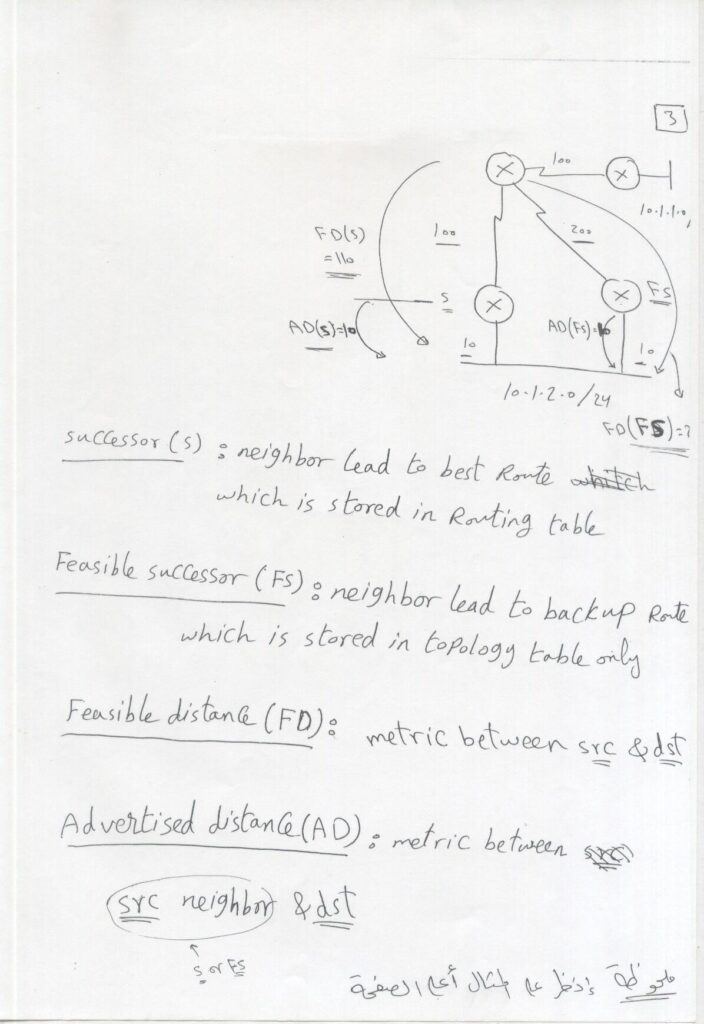 3
100
10.1.1.0,
FD(S)
=110
100
200
S
FS
AD(S)=10
AD(FS)=10
10
10
10.1.2.0/24
FD(FS)=?
successor(s) : neighbor lead to best Route
which is stored in Routing table
Feasible successor (FS) : neighbor lead to backup Route
which is stored in topology table only
Feasible distance (FD) : metric between src & dst
Advertised distance (AD) : metric between
src neighbor & dst
s or FS
ملحوظة إنظر على المثال أعلى الصفحة